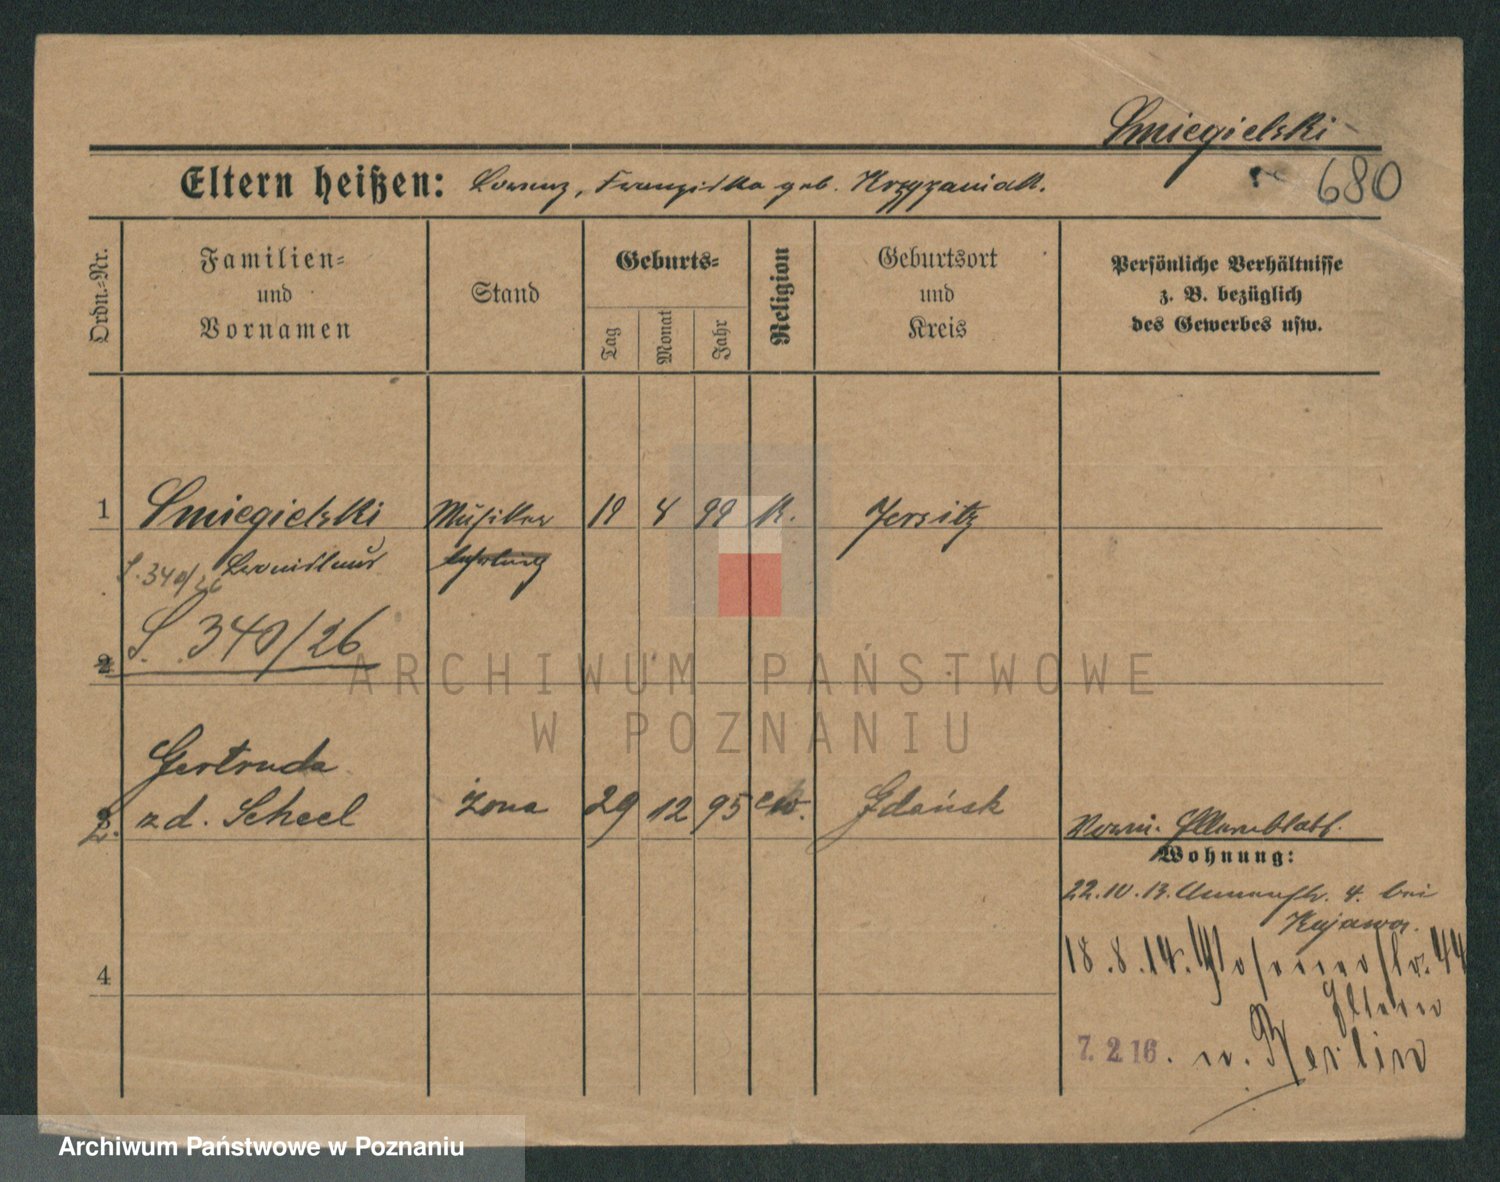 Smiegielski
680
Eltern heißen: Lorenz, Franziska geb. Krzyzaniak.
Ordn.=Nr.
Familien=
und
Vornamen
Stand
Geburts=
Tag
Monat
Jahr
Religion
Geburtsort
und
Kreis
Persönliche Verhältnisse
z. B. bezüglich
des Gewerbes usw.
1 Smiegielski Musiker 19 4 99 K. Jersitz
S. 340/26 Leonidlaus lehrling
2 S. 340/26
Gertruda
2. zd. Scheel żona 29 12 95 ew. Gdańsk
Elternblatt.
Wohnung:
22.10.13. 4. bei
Kajawa.
18.8.14. Posenerstr. 44
Eltern
4
7. 2. 16. n. Berlin
ARCHIWUM PAŃSTWOWE
W POZNANIU
Archiwum Państwowe w Poznaniu